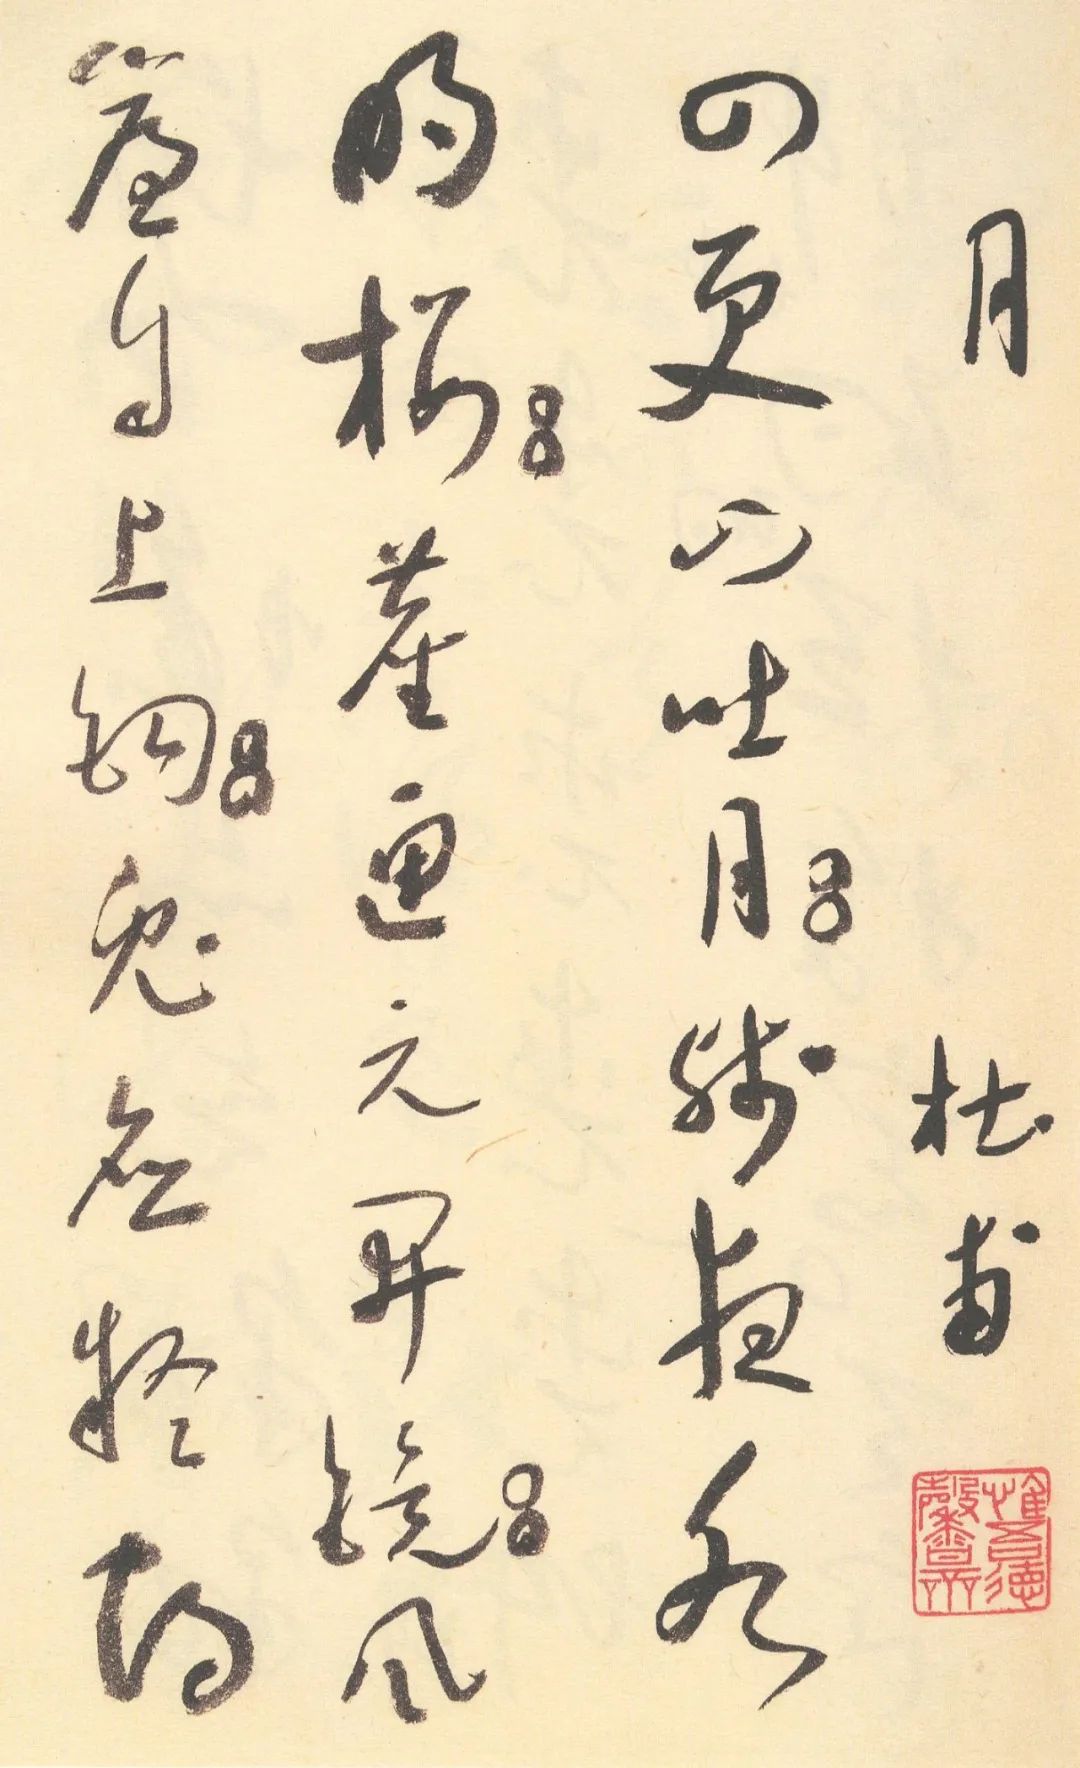 月 杜甫
惟吾德馨
四更山吐月殘夜水
明樓塵匣元開鏡風
簾自上鈎兔應疑鶴